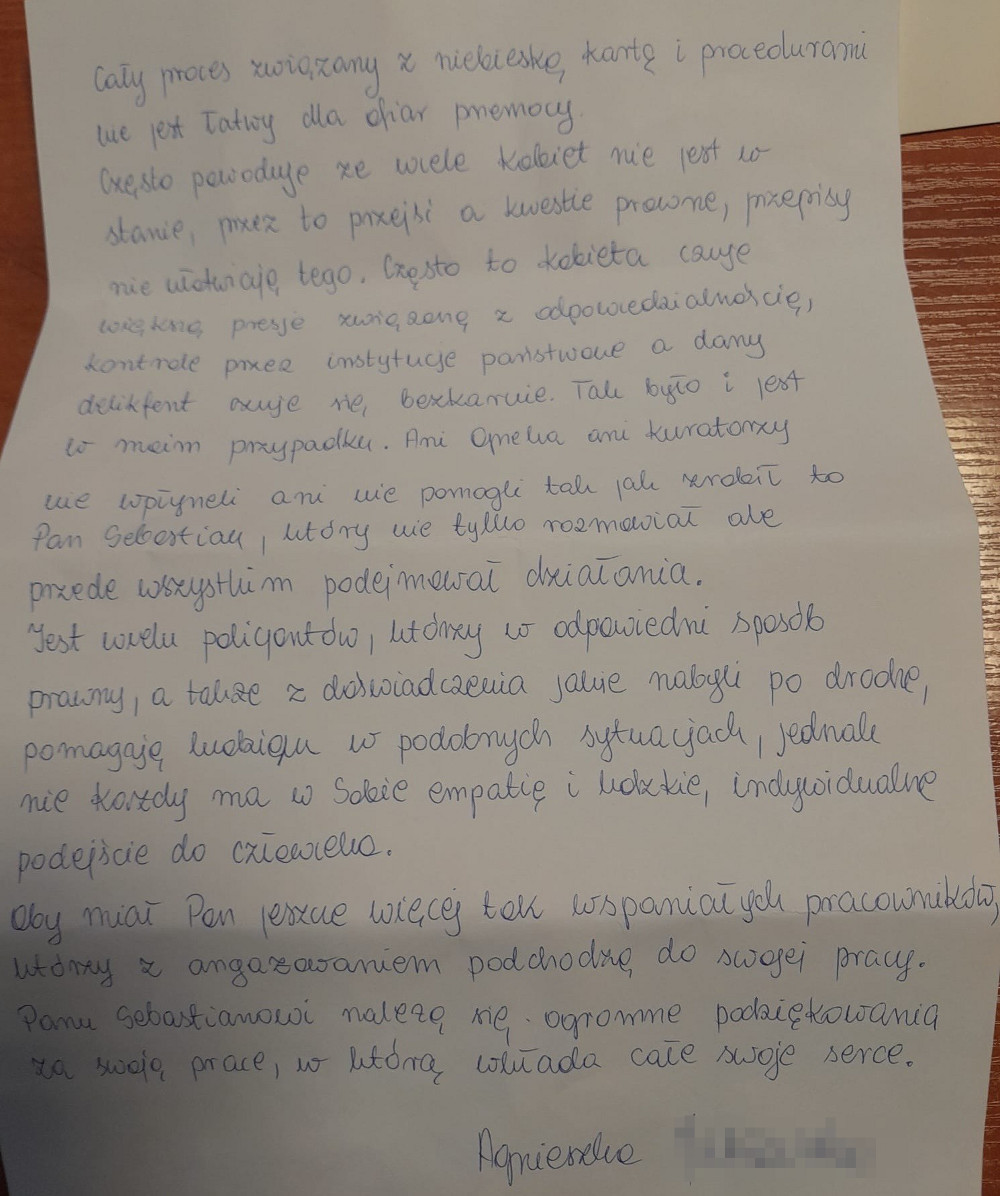 Cały proces związany z niebieską kartą i procedurami
nie jest łatwy dla ofiar przemocy.
Często powoduje że wiele kobiet nie jest w
stanie, przez to przejść a kwestie prawne, przepisy
nie ułatwiają tego. Często to kobieta czuje
większą presje związaną z odpowiedzialnością,
kontrole przez instytucje państwowe a dany
delikfent czuje się bezkarnie. Tak było i jest
w moim przypadku. Ani Opieka ani kuratorzy
nie wpłyneli ani nie pomogli tak jak zrobił to
Pan Sebastian, który nie tylko rozmawiał ale
przede wszystkim podejmował działania.
Jest wielu policjantów, którzy w odpowiedni sposób
prawny, a także z doświadczenia jakie nabyli po drodze,
pomagają ludziom w podobnych sytuacjach, jednak
nie każdy ma w Sobie empatię i ludzkie, indywidualne
podejście do człowieka.
Oby miał Pan jeszcze więcej tak wspaniałych pracowników,
którzy z angażowaniem podchodzą do swojej pracy.
Panu Sebastianowi należą się ogromne podziękowania
za swoją prace, w którą wkłada całe swoje serce.
Agnieszka